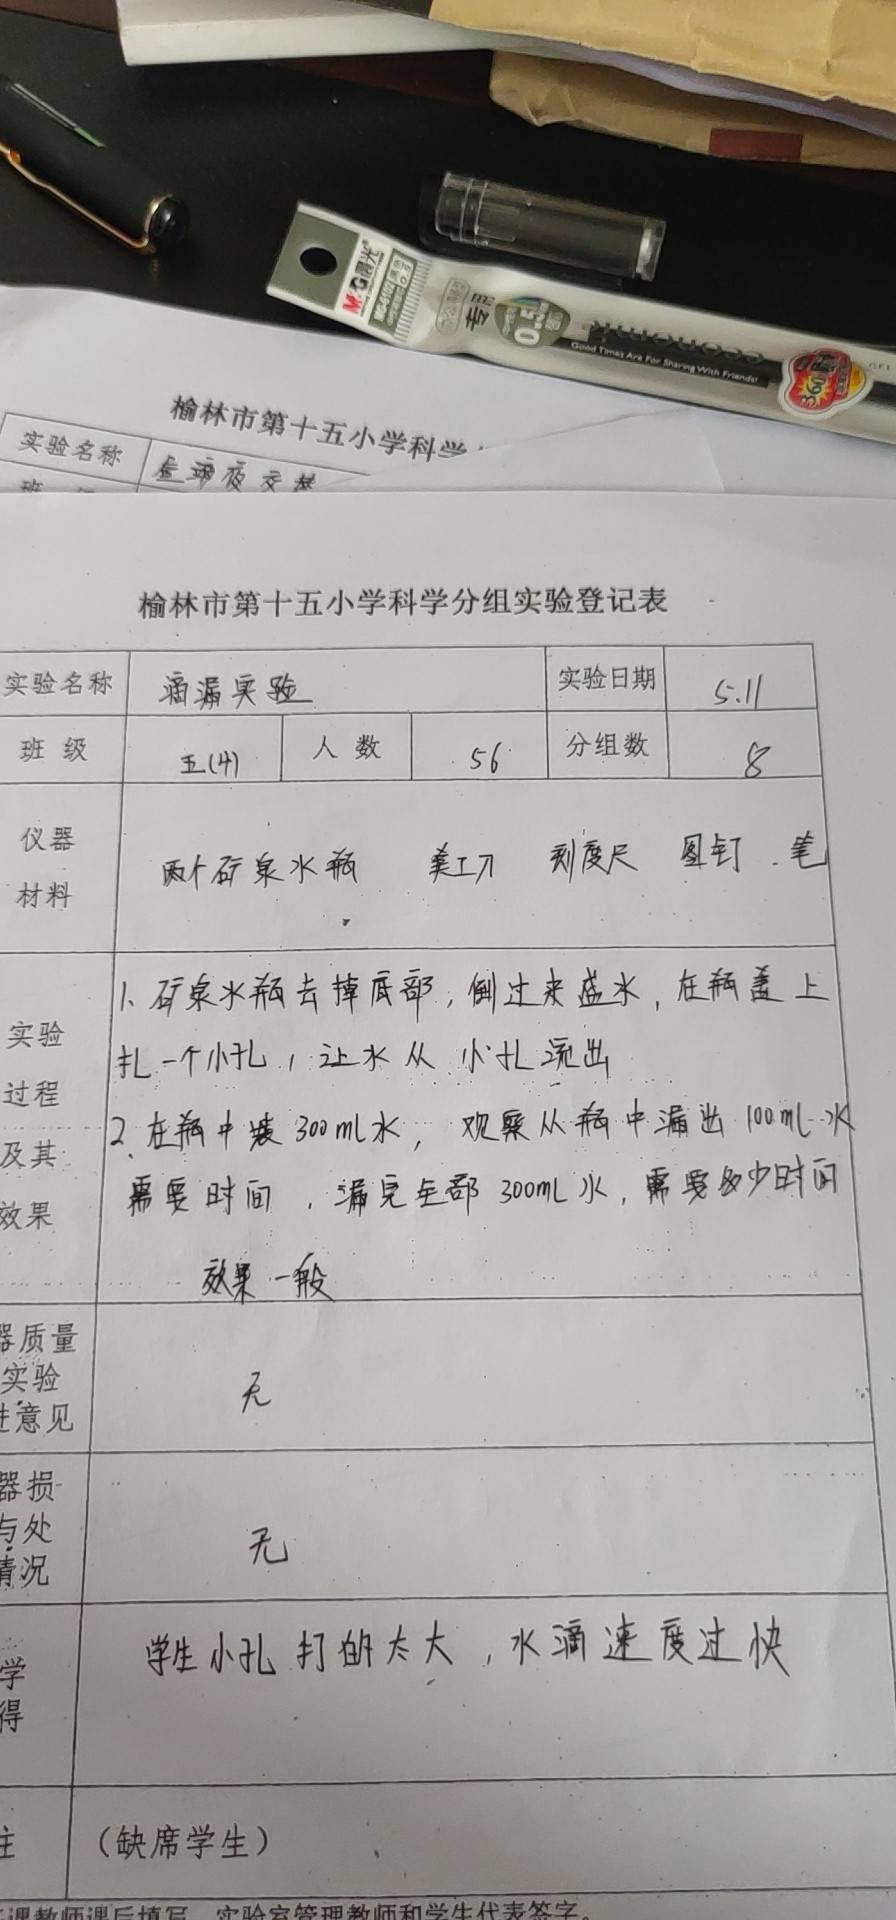 M&G晨光
专用
0.5
Good Times Are For Sharing With Friends!
360
GEL
榆林市第十五小学科学
实验名称
榆林市第十五小学科学分组实验登记表
实验名称 滴漏实验 实验日期 5.11
班级 五(4) 人数 56 分组数 8
仪器
材料
两个矿泉水瓶 美工刀 刻度尺 图钉 笔
实验
过程
及其
效果
1、矿泉水瓶去掉底部,倒过来盛水,在瓶盖上
扎一个小孔,让水从小孔流出
2、在瓶中装300ml水,观察从瓶中漏出100mL水
需要时间,漏完全部300mL水,需要多少时间
效果一般
器质量
实验
进意见
无
器损
与处
情况
无
学
得
学生小孔打的太大,水滴速度过快
注
(缺席学生)
课教师课后填写,实验室管理教师和学生代表签字。